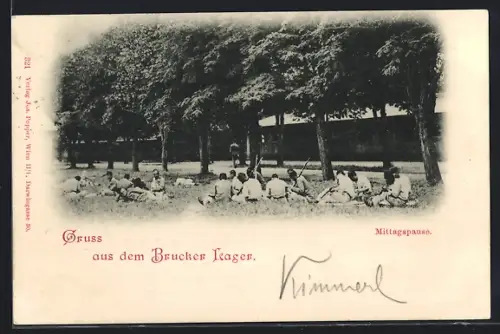 221 Verlag Jos. Popper, Wien II/1, Darwingasse 30.
Mittagspause.
Gruss
aus dem Brucker Lager.
Kimmerl